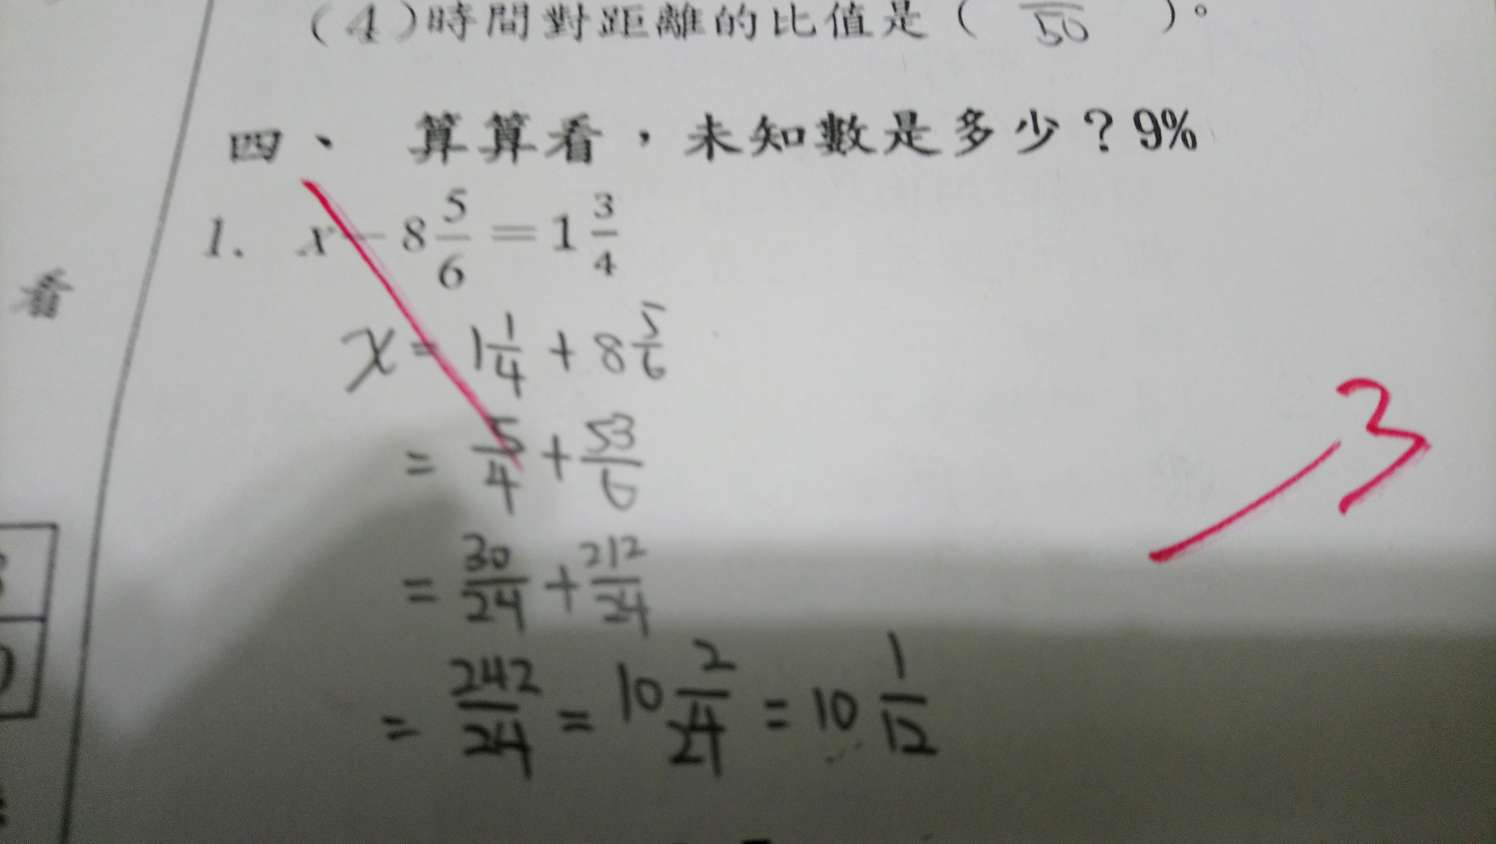 (4)時間對距離的比值是( 50 )。
四、 算算看，未知數是多少？9%
1. x − 8 5/6 = 1 3/4
看
x = 1 1/4 + 8 5/6
= 5/4 + 53/6
3
= 30/24 + 212/24
= 242/24 = 10 2/24 = 10 1/12